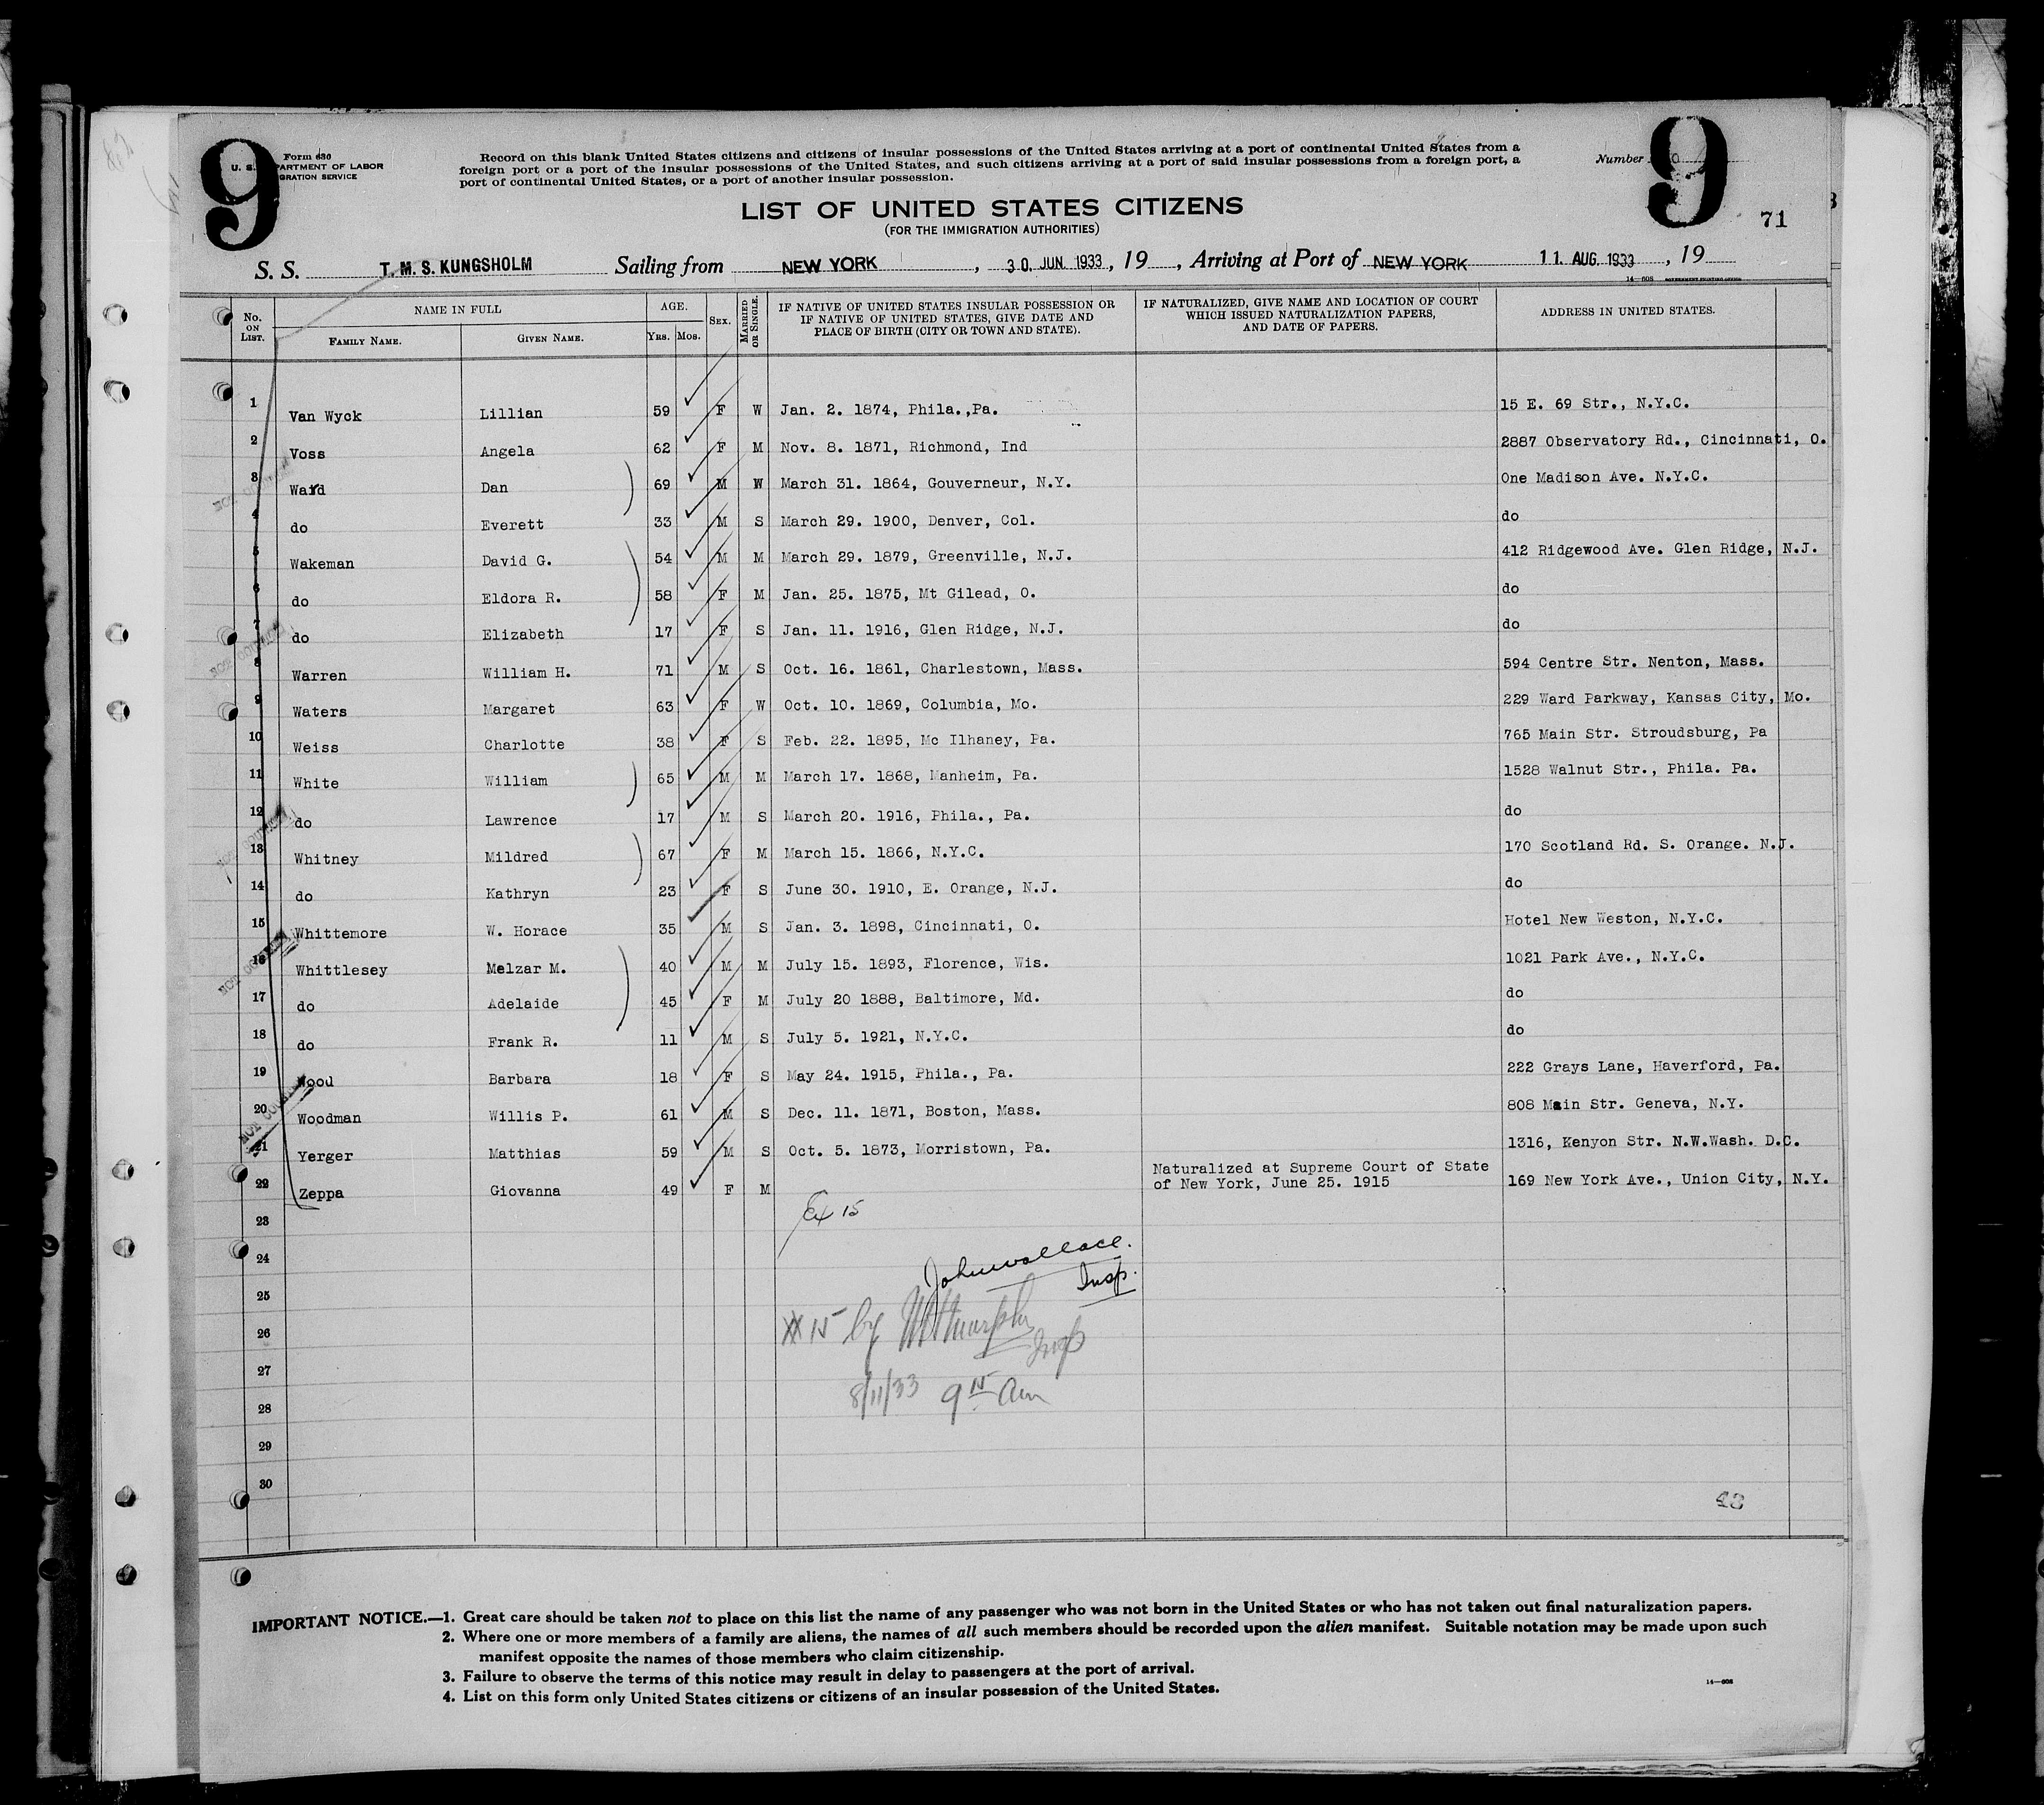 9
9
Form 630
U. S. DEPARTMENT OF LABOR
IMMIGRATION SERVICE
Record on this blank United States citizens and citizens of insular possessions of the United States arriving at a port of continental United States from a
foreign port or a port of the insular possessions of the United States, and such citizens arriving at a port of said insular possessions from a foreign port, a
port of continental United States, or a port of another insular possession.
Number
LIST OF UNITED STATES CITIZENS
(FOR THE IMMIGRATION AUTHORITIES)
71
S. S. T. M. S. KUNGSHOLM Sailing from NEW YORK, 30. JUN. 1933, 19 , Arriving at Port of NEW YORK 11. AUG. 1933, 19
14—608 GOVERNMENT PRINTING OFFICE
No. ON LIST. NAME IN FULL AGE. SEX. MARRIED OR SINGLE. IF NATIVE OF UNITED STATES INSULAR POSSESSION OR IF NATIVE OF UNITED STATES, GIVE DATE AND PLACE OF BIRTH (CITY OR TOWN AND STATE). IF NATURALIZED, GIVE NAME AND LOCATION OF COURT WHICH ISSUED NATURALIZATION PAPERS, AND DATE OF PAPERS. ADDRESS IN UNITED STATES.
FAMILY NAME. GIVEN NAME. YRS. MOS.
1 Van Wyck Lillian 59 F W Jan. 2. 1874, Phila.,Pa. 15 E. 69 Str., N.Y.C.
2 Voss Angela 62 F M Nov. 8. 1871, Richmond, Ind 2887 Observatory Rd., Cincinnati, O.
3 Ward Dan 69 M W March 31. 1864, Gouverneur, N.Y. One Madison Ave. N.Y.C.
4 do Everett 33 M S March 29. 1900, Denver, Col. do
5 Wakeman David G. 54 M M March 29. 1879, Greenville, N.J. 412 Ridgewood Ave. Glen Ridge, N.J.
6 do Eldora R. 58 F M Jan. 25. 1875, Mt Gilead, O. do
7 do Elizabeth 17 F S Jan. 11. 1916, Glen Ridge, N.J. do
8 Warren William H. 71 M S Oct. 16. 1861, Charlestown, Mass. 594 Centre Str. Nenton, Mass.
9 Waters Margaret 63 F W Oct. 10. 1869, Columbia, Mo. 229 Ward Parkway, Kansas City, Mo.
10 Weiss Charlotte 38 F S Feb. 22. 1895, Mc Ilhaney, Pa. 765 Main Str. Stroudsburg, Pa
11 White William 65 M M March 17. 1868, Manheim, Pa. 1528 Walnut Str., Phila. Pa.
12 do Lawrence 17 M S March 20. 1916, Phila., Pa. do
13 Whitney Mildred 67 F M March 15. 1866, N.Y.C. 170 Scotland Rd. S. Orange. N.J.
14 do Kathryn 23 F S June 30. 1910, E. Orange, N.J. do
15 Whittemore W. Horace 35 M S Jan. 3. 1898, Cincinnati, O. Hotel New Weston, N.Y.C.
16 Whittlesey Melzar M. 40 M M July 15. 1893, Florence, Wis. 1021 Park Ave., N.Y.C.
17 do Adelaide 45 F M July 20 1888, Baltimore, Md. do
18 do Frank R. 11 M S July 5. 1921, N.Y.C. do
19 Wood Barbara 18 F S May 24. 1915, Phila., Pa. 222 Grays Lane, Haverford, Pa.
20 Woodman Willis P. 61 M S Dec. 11. 1871, Boston, Mass. 808 Main Str. Geneva, N.Y.
21 Yerger Matthias 59 M S Oct. 5. 1873, Morristown, Pa. 1316, Kenyon Str. N.W.Wash. D.C.
22 Zeppa Giovanna 49 F M Naturalized at Supreme Court of State of New York, June 25. 1915 169 New York Ave., Union City, N.Y.
23 Ex 15
24 John Wallace.
25 Insp.
26 15 by Murphy Insp
27
28 8/11/33 9 15 am
29
30
43
IMPORTANT NOTICE.—1. Great care should be taken not to place on this list the name of any passenger who was not born in the United States or who has not taken out final naturalization papers.
2. Where one or more members of a family are aliens, the names of all such members should be recorded upon the alien manifest. Suitable notation may be made upon such
manifest opposite the names of those members who claim citizenship.
3. Failure to observe the terms of this notice may result in delay to passengers at the port of arrival.
4. List on this form only United States citizens or citizens of an insular possession of the United States.
14—608